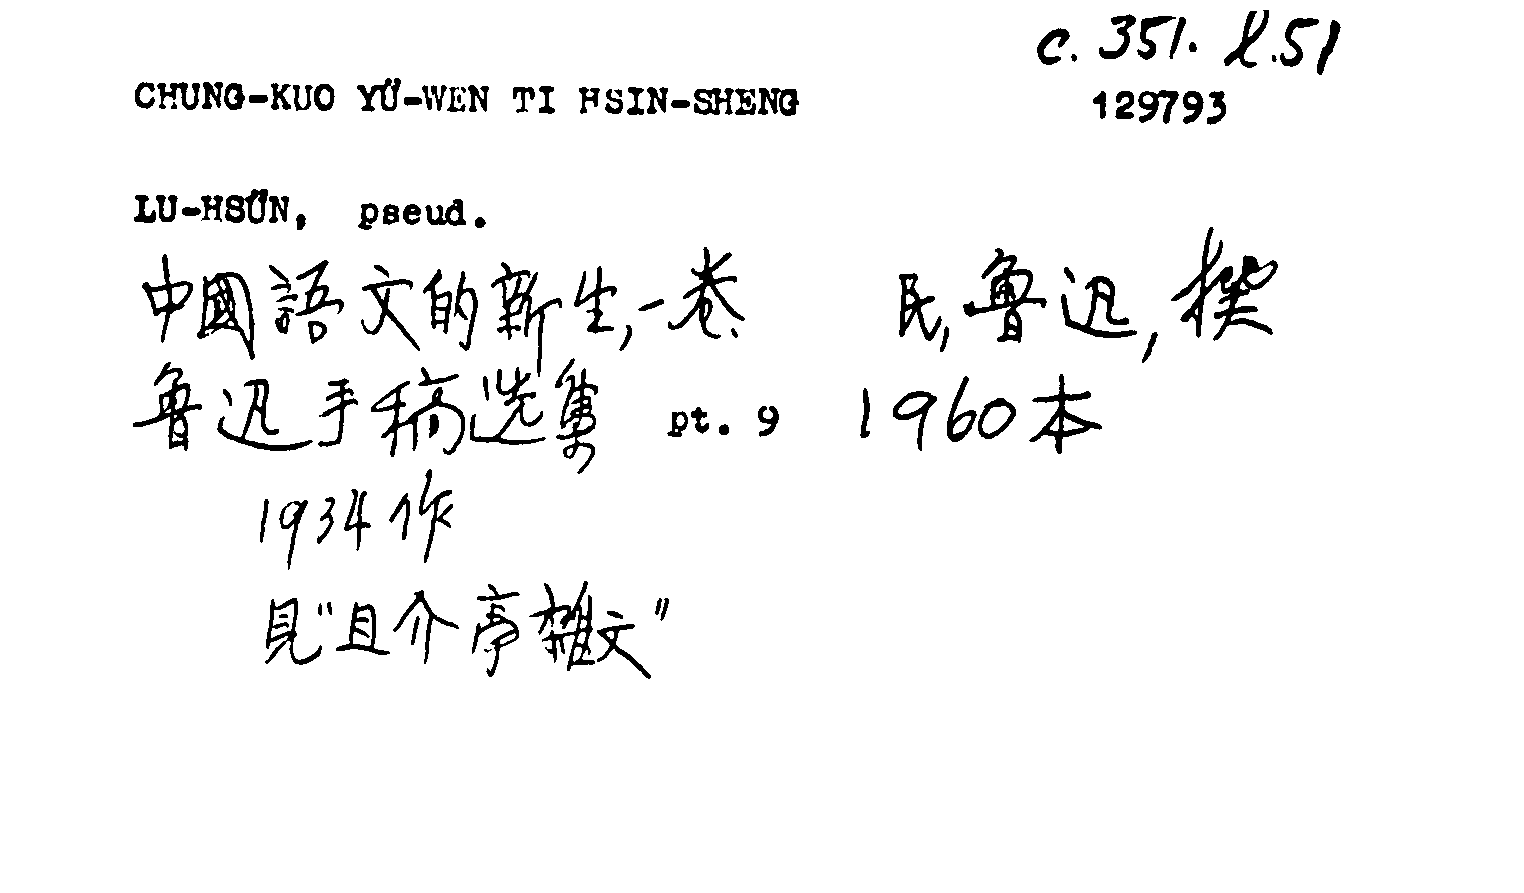 c. 351. l. 51
CHUNG-KUO YÜ-WEN TI HSIN-SHENG 129793
LU-HSÜN, pseud.
中國語文的新生,一卷 民,魯迅,撰
魯迅手稿选集 pt. 9 1960本
1934作
見"且介亭雜文"